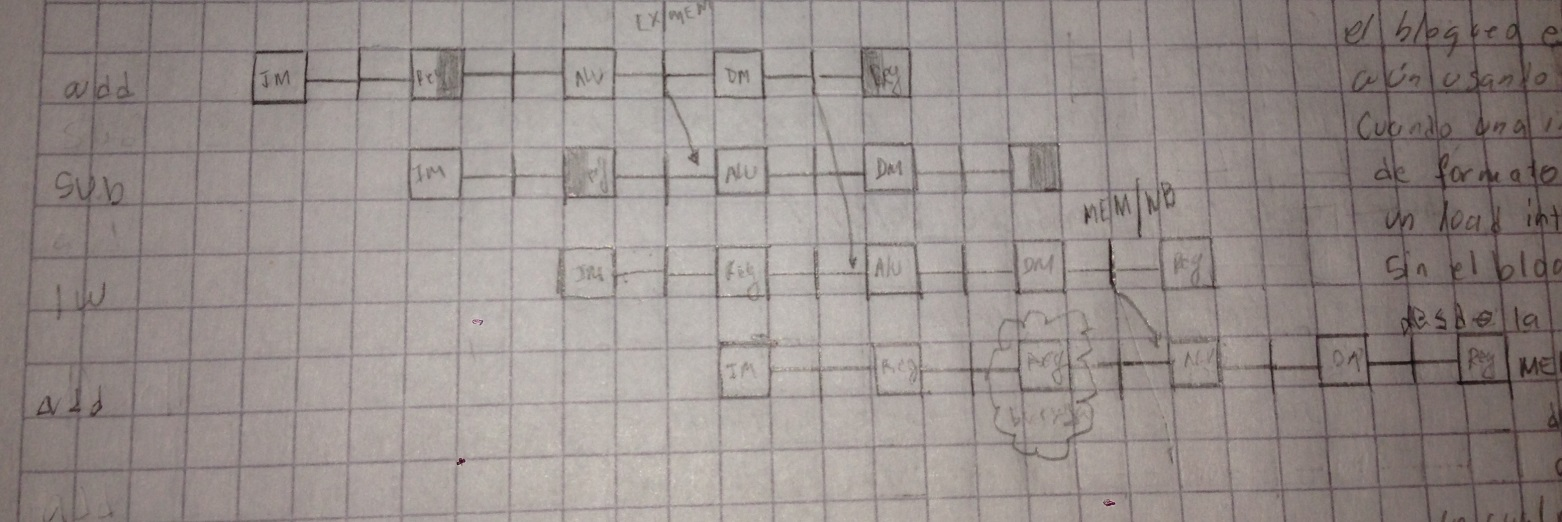 EX/MEM
add IM Reg ALU DM Reg
sub IM Reg ALU DM
MEM/WB
lw IM Reg ALU DM Reg
add IM Reg Reg ALU DM Reg
el bloqueo e
aún usando
Cuando una i
de formato
un load int
Sin el bloq
desde la
ME
d